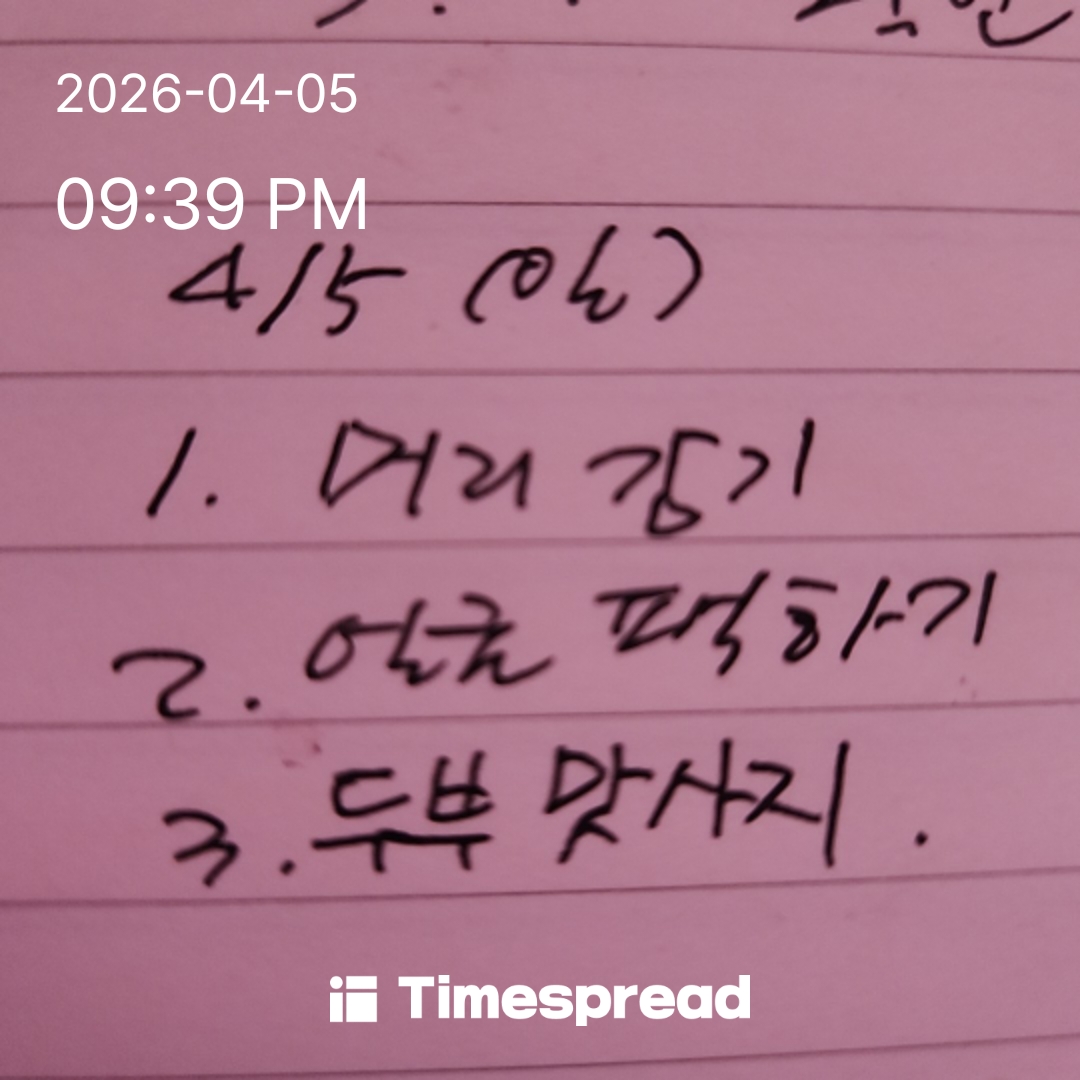 2026-04-05
09:39 PM
4/5 (일)
1. 머리 감기
2. 얼굴 팩하기
3. 두부 맛사지.
Timespread